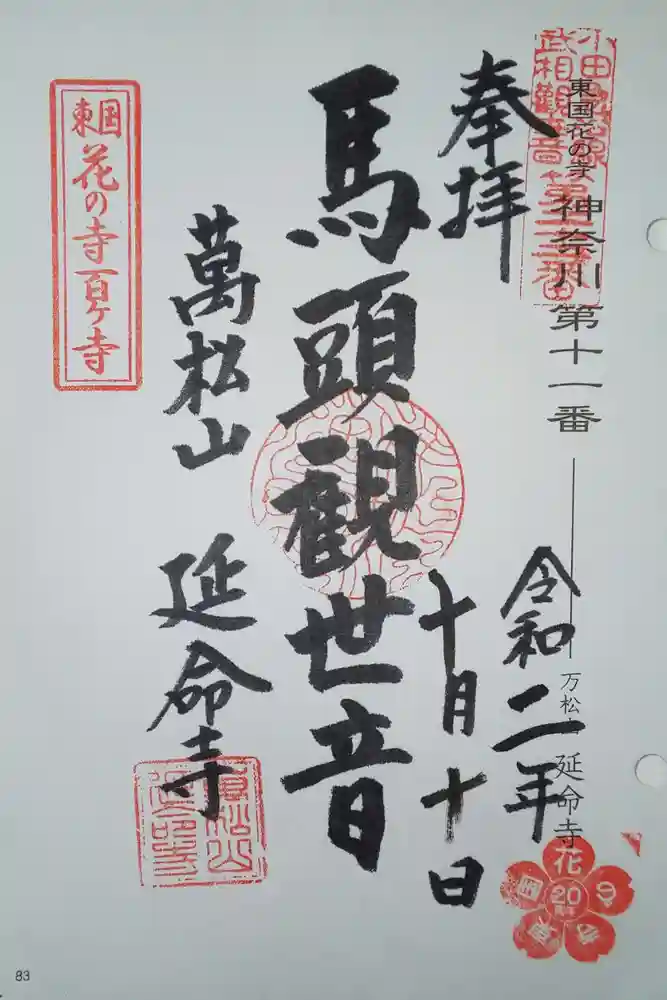 東国花の寺 神奈川 第十一番
万松山 延命寺
奉拝
令和二年
十月十日
馬頭觀世音
萬松山 延命寺
東国
花の寺百ヶ寺
花の寺東国
20
周年
83